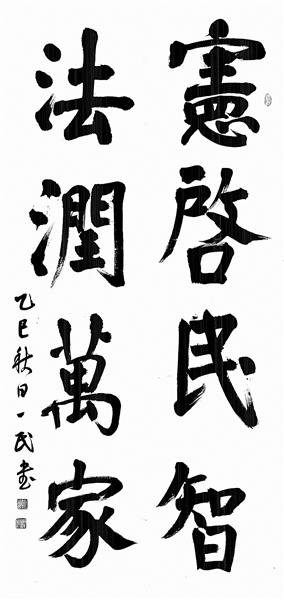 憲啓民智
法潤萬家
乙巳秋日一民書